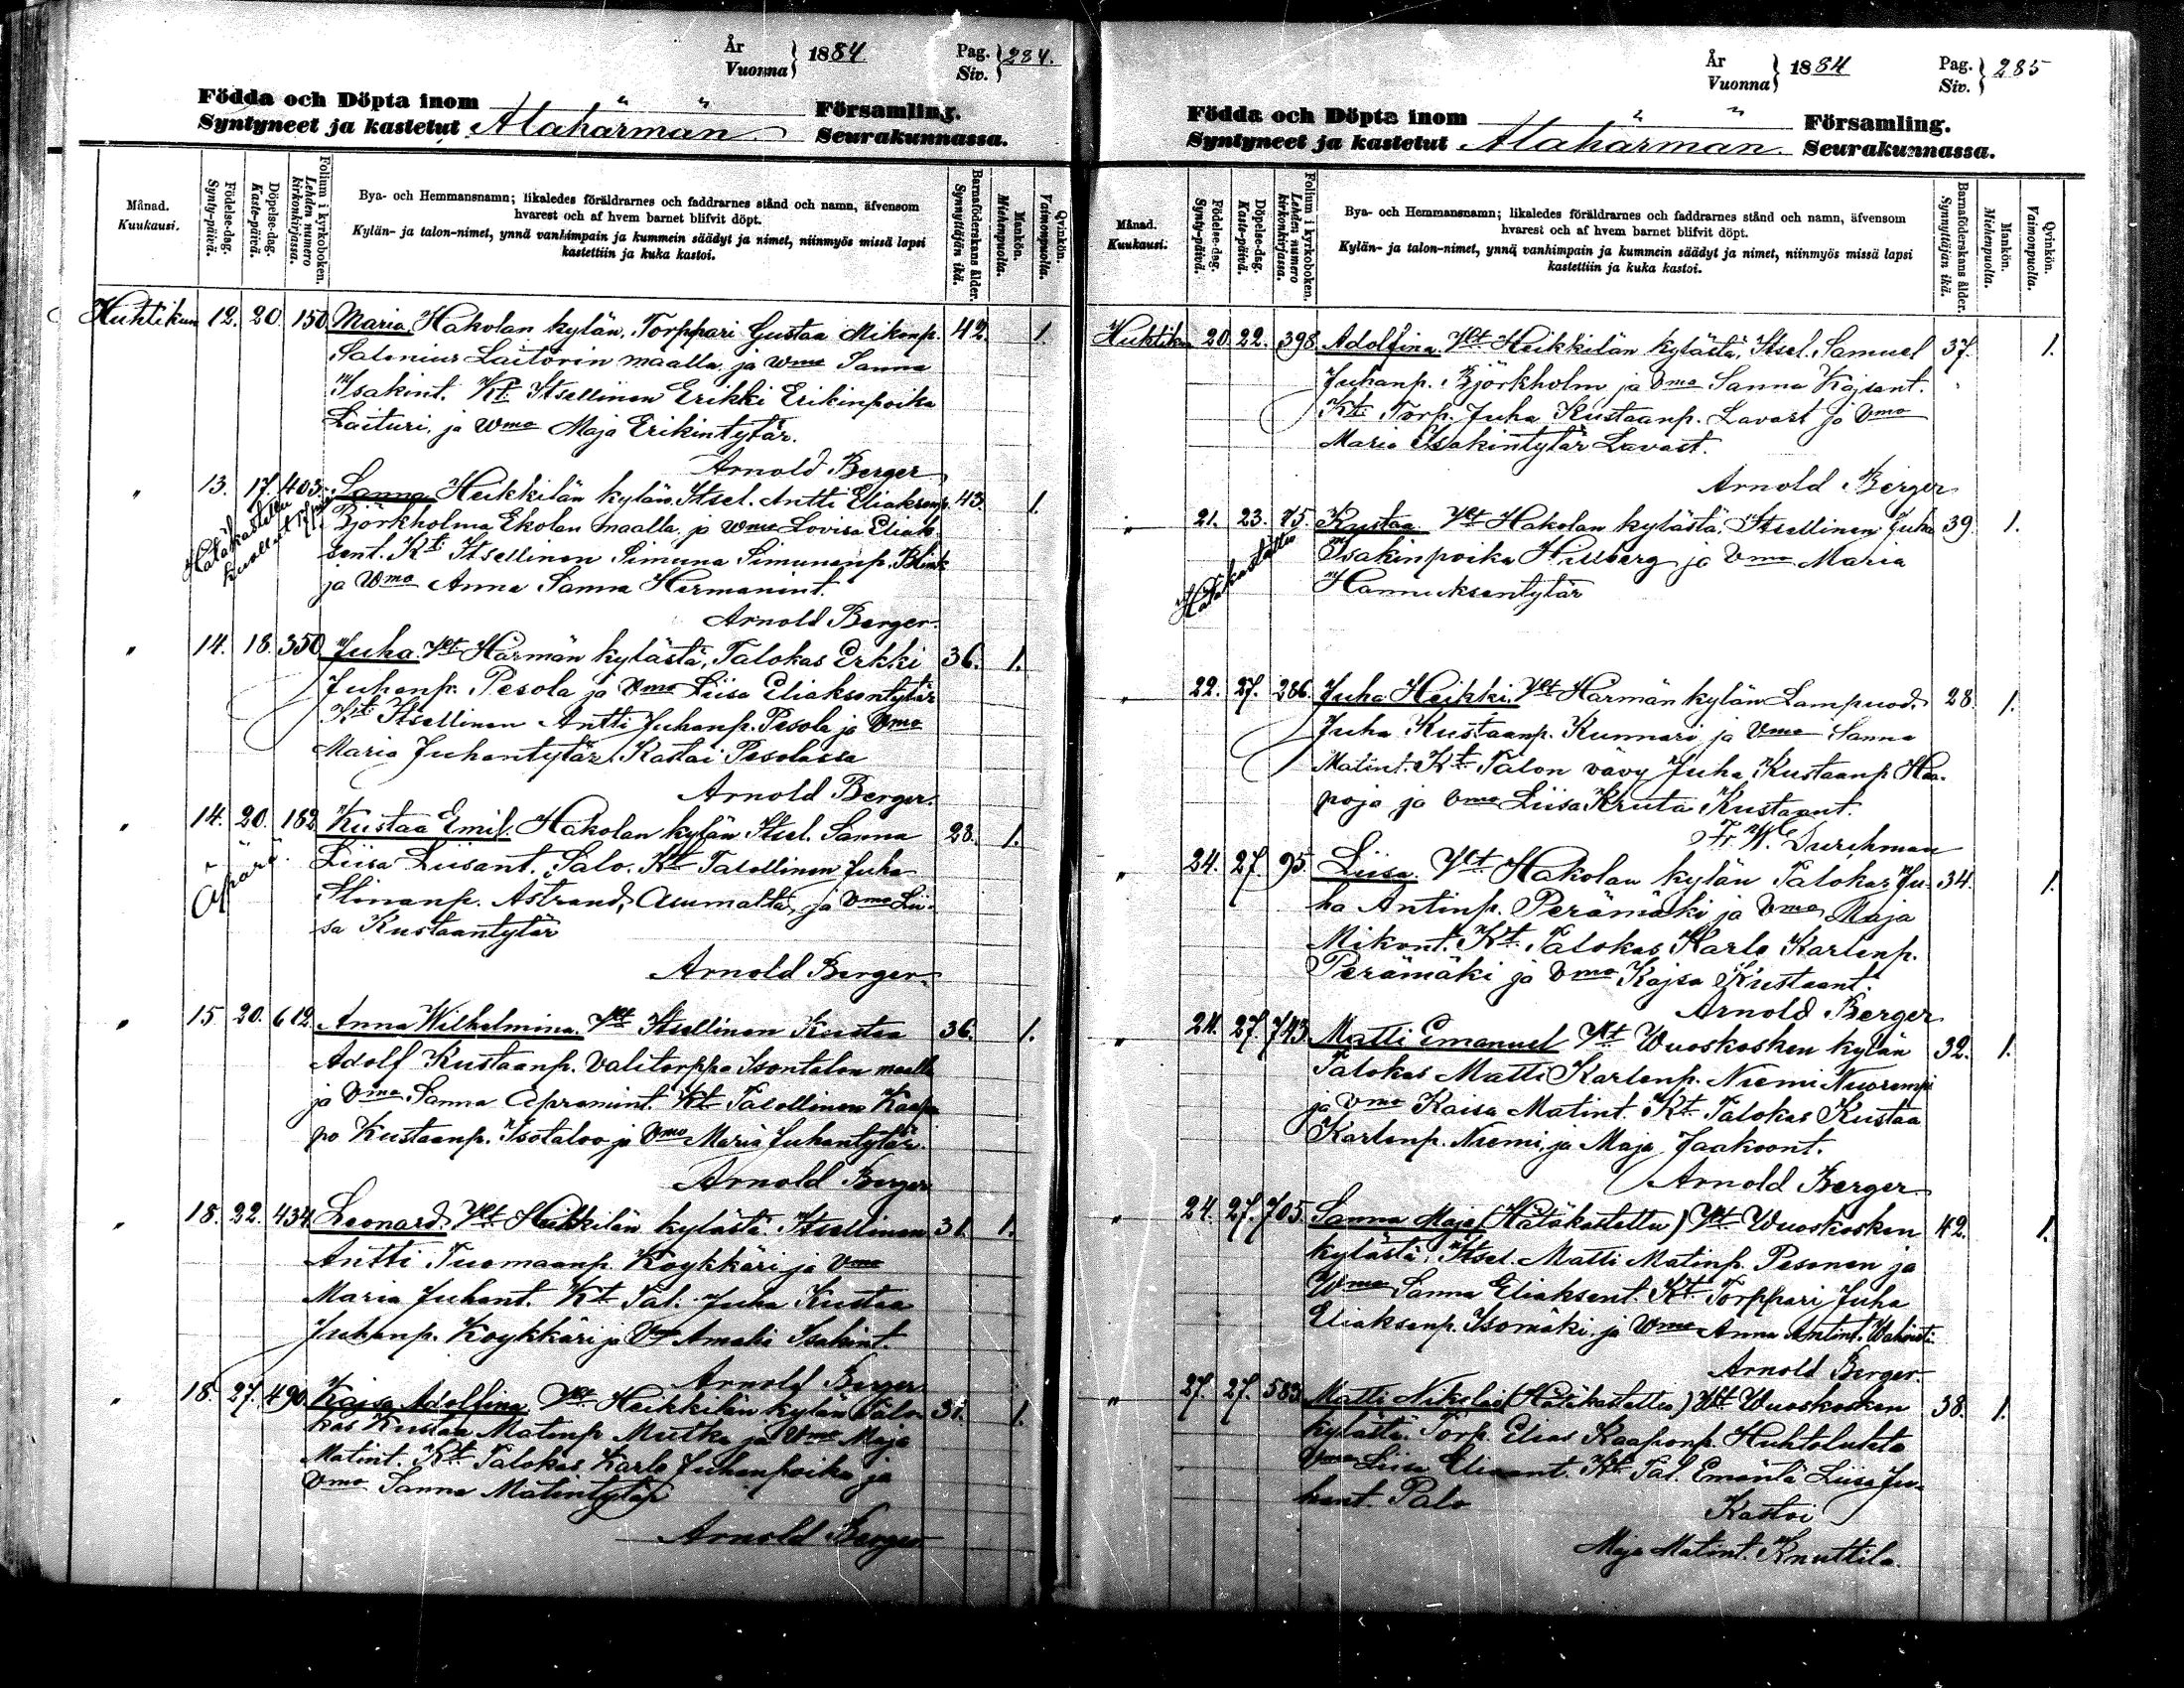 År
Vuonna } 1884
Pag.
Siv. } 284.
Födda och Döpta inom " " Församling.
Syntyneet ja kastetut Alahärmän Seurakunnassa.
Månad.
Kuukausi.
Födelse-dag.
Synty-päivä.
Döpelse-dag.
Kaste-päivä.
Folium i kyrkoboken.
Lehden numero
kirkonkirjassa.
Bya- och Hemmansnamn; likaledes föräldrarnes och faddrarnes stånd och namn, äfvensom
hvarest och af hvem barnet blifvit döpt.
Kylän- ja talon-nimet, ynnä vanhimpain ja kummein säädyt ja nimet, niinmyös missä lapsi
kastettiin ja kuka kastoi.
Barnaföderskans ålder.
Synnyttäjän ikä.
Mankön.
Miehenpuolta.
Qvinkön.
Vaimonpuolta.
Huhtikun 12. 20. 150 Maria, Hakolan kylän, Torppari Gustaa Mikonp. 42. 1.
Salonius Laitorin maalla, ja Wmo Sanna
Isakint. Kt. Itsellinen Erikki Erikinpoika
Laituri, ja Wmo Maja Erikintytär.
Arnold Berger
" 13. 17. 403. Sanna Heikkilän kylän Itsel. Antti Eliaksenp. 43. 1.
Hätäkastettu
kuollut
Björkholma Ekolan maalla, ja Wmo Lovisa Eliak
sent. Kt. Itsellinen Simuna Simunanp. Blink
ja Wmo Anna Sanna Hermanint.
Arnold Berger.
" 14. 18. 350 Juha. Vht Härmän kylästä, Talokas Erkki 36. 1.
Juhanp. Pesola ja Vmo Liisa Eliaksentytär
Kt. Itsellinen Antti Juhanp. Pesola ja Vmo
Maria Juhantytär. Kastoi Pesolassa
Arnold Berger.
" 14. 20. 182 Kustaa Emil. Hakolan kylän Itsel. Sanna 23. 1.
Äpärä.
Liisa Liisant. Salo. Kt. Talollinen Juha
Astrand, Asumalta, ja Vmo Lii-
sa Kustaantytär
Arnold Berger
" 15. 20. 612. Anna Wilhelmina. Vht Itsellinen Kustaa 36. 1.
Adolf Kustaanp. Valitorppa Isontalon maalla
ja Vmo Sanna Apramint. Kt. Talollinen Kaap
po Kustaanp. Isotaloo ja Vmo Maria Juhantytär.
Arnold Berger
" 18. 22. 434. Leonard. Vht Heikkilän kylästä. Itsellinen 31. 1.
Antti Tuomaanp. Köykkäri ja Vmo
Maria Juhant. Kt. Tal. Juha Kustaa
Juhanp. Köykkäri ja Vmo Amali Isakint.
Arnold Berger
" 18. 27. 490. Kajsa Adolfina. Vht Heikkilän kylän Talo- 31. 1.
kas Kustaa Matinp. Mutka ja Vmo Maja
Matint. Kt. Talokas Karlo Juhanpoika ja
Vmo Sanna Matintytär
Arnold Berger
År
Vuonna } 1884
Pag.
Siv. } 285
Födda och Döpta inom " " Församling.
Syntyneet ja kastetut Alahärmän Seurakunnassa.
Månad.
Kuukausi.
Födelse-dag.
Synty-päivä.
Döpelse-dag.
Kaste-päivä.
Folium i kyrkoboken.
Lehden numero
kirkonkirjassa.
Bya- och Hemmansnamn; likaledes föräldrarnes och faddrarnes stånd och namn, äfvensom
hvarest och af hvem barnet blifvit döpt.
Kylän- ja talon-nimet, ynnä vanhimpain ja kummein säädyt ja nimet, niinmyös missä lapsi
kastettiin ja kuka kastoi.
Barnaföderskans ålder.
Synnyttäjän ikä.
Mankön.
Miehenpuolta.
Qvinkön.
Vaimonpuolta.
Huhtikun 20. 22. 398. Adolfina. Vht Heikkilän kylästä, Itsel. Samuel 37. 1.
Juhanp. Björkholm ja Vmo Sanna Kajsant.
Kt. Torp. Juha Kustaanp. Lavast ja Vmo
Maria Isakintytär Lavast.
Arnold Berger
" 21. 23. 75. Kustaa. Vht Hakolan kylästä, Itsellinen Juha 39. 1.
Hätäkastettu
Isakinpoika Hilberg ja Vmo Maria
Hannuksentytär
" 22. 27. 286. Juha Heikki. Vht Härmän kylän Lampuod. 28. 1.
Juha Kustaanp. Kunnari ja Vmo Sanna
Matint. Kt. Talon vävy Juha Kustaanp. Haa-
poja ja Vmo Liisa Kruta Kustaant.
Fr. W. Durchman
" 24. 27. 95. Liisa. Vht Hakolan kylän Talokas Ju- 34. 1.
ha Antinp. Perämäki ja Vmo Maja
Mikont. Kt. Talokas Karlo Karlenp.
Perämäki ja Vmo Kajsa Kustaant.
Arnold Berger
" 24. 27. 743. Matti Emanuel Vht Wuoskosken kylän 32. 1.
Talokas Matti Karlenp. Niemi Nuorempi
ja Vmo Kaisa Matint. Kt. Talokas Kustaa
Karlenp. Niemi, ja Maja Jaakoont.
Arnold Berger
" 24. 27. 705. Sanna Maja (Hätäkastettu) Vht Wuoskosken 42. 1.
kylästä, Itsel. Matti Matinp. Pesonen ja
Wmo Sanna Eliaksent. Kt. Torppari Juha
Eliaksenp. Isomäki ja Wmo Anna Antint.
Arnold Berger.
" 27. 27. 583. Matti Nikolai (Hätäkastettu) Vht Wuoskosken 38. 1.
kylästä. Torp. Elias Kaaponp. Huhtoluhta
Vmo Liisa Kt. Tal. Emäntä Liisa Ju-
hant. Palo
Kastoi
Maja Matint. Knuttila.